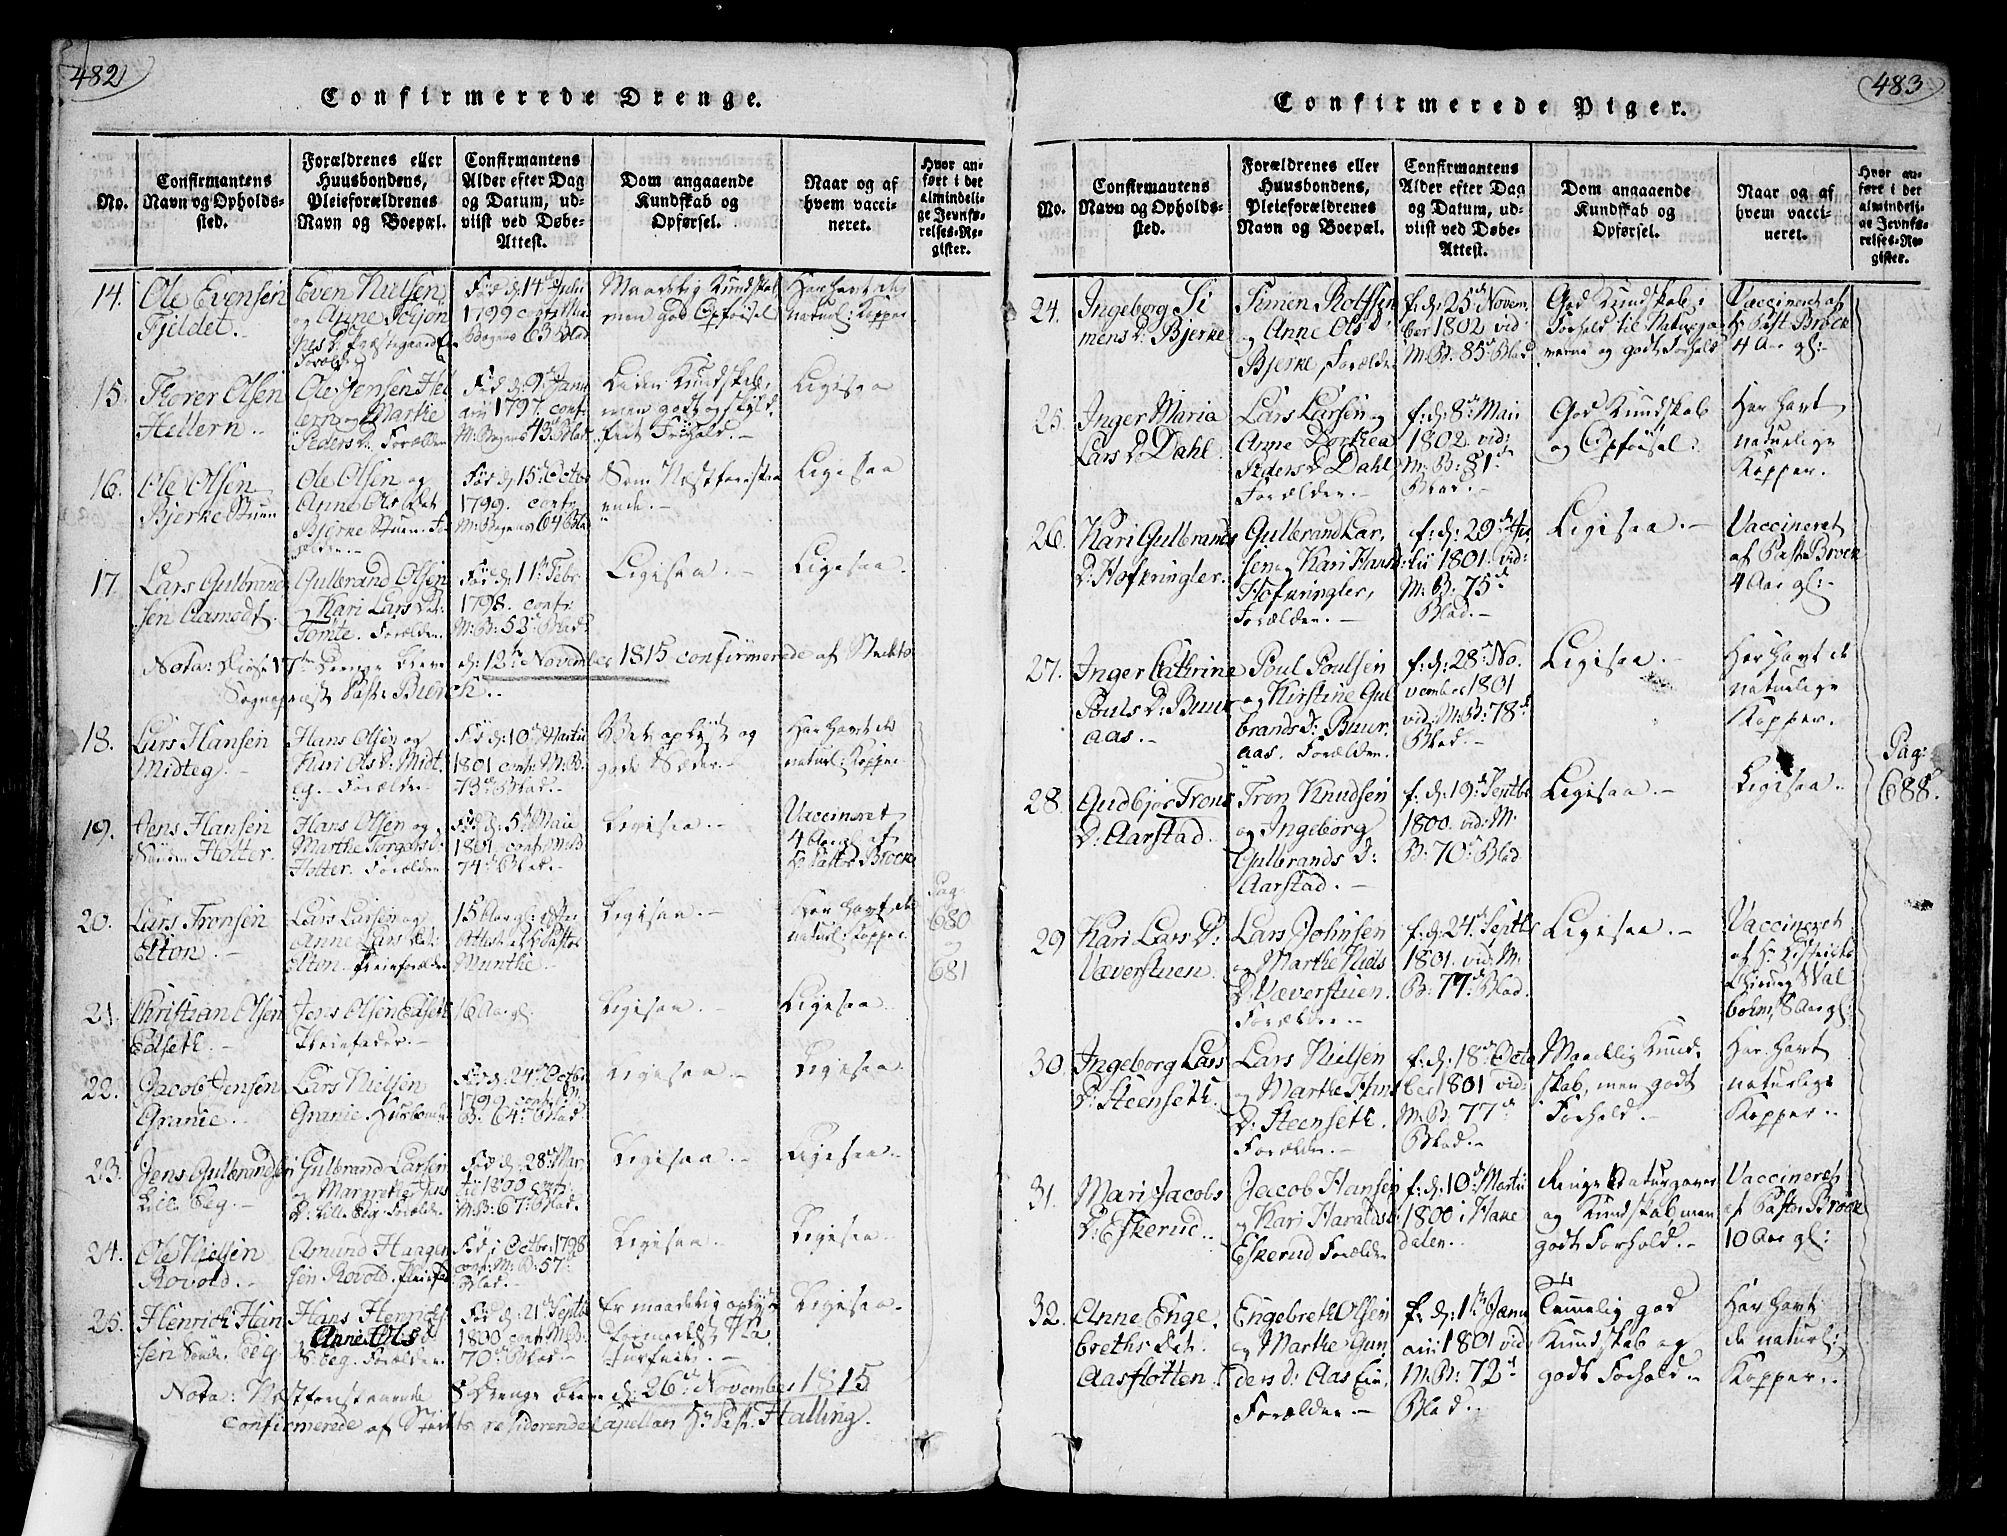 482
Confirmerede Drenge.
No.
Confirmantens
Navn og Opholds-
sted.
Forældrenes eller
Huusbondens,
Pleieforældrenes
Navn og Boepæl.
Confirmantens
Alder efter Dag
og Datum, ud-
viist ved Døbe-
Attest.
Dom angaaende
Kundskab og
Opførsel.
Naar og af
hvem vacci-
neret.
Hvor an-
ført i det
almindeli-
ge Jevnfø-
relses-Re-
gister.
14.
Ole Evensen
Fjeldet.
Even Nielsen
og Anne
Forældre
Fød d: 14de
1799
Bogens 63 Blad
Maadelig Kundskab
men god Opførsel
Har havt de
naturl: Kopper
15.
Olsen
Hellern.
Ole Jensen Hel
lern og Marthe
Peders D. Forældre
Fød d: 9de Janu
arii 1797. conf:
M: Bogens 43 Blad
Liden Kundskab,
men godt og skyld
frit Forhold.
Ligesaa
16.
Ole Olsen
Bjerke Stuen
Ole Olsen og
Anne Ols Det
Bjerke Stuen. F
orældre.
Fød d: 15de Octbr
1799. conf:
M: Bogens 64 Blad
Som Næstforestaa
ende.
Ligesaa
17.
Lars Gulbrand
sen Aamodt.
Gulbrand Olsen
og Kari Lars Det:
Tomte. Forældre
Fød d: 11te Febr
1798. conf:
M: B: 53de Blad
Ligesaa.
Ligesaa.
Nota: Disse 17ten Drenge bleve d: 12te November 1815 confirmerede af Stedets
Sogneprest Past: Burch.
18.
Lars Hansen
Midteg.
Hans Olsen og
Kari Ols D: Midt
eg. Forældre
Fød d: 10de Martii
1801 conf: M: B:
73de Blad.
Vel oplyst og
gode Sæder.
Har havt de
naturl: Kopper
19.
Jens Hansen
Søndre Holter.
Hans Olsen og
Marthe
Holter. Forældre
Fød d: 5te Maii
1801 conf: M: B:
74de Blad.
Ligesaa.
Vaccineret
4 Aar gl: af
Hr Past: Brock
20.
Lars Tronsen
Elton.
Lars Larsen og
Anne Lars Det:
Elton. Pleieforældre
15 Aar gl: efter
Attest af Hr Pastor
Munthe.
Ligesaa.
Har havt de
naturl: Kopper.
Pag:
680
og
681
21.
Christian Olsen
Edseth.
Jens Olsen Edseth
Pleiefader.
16 Aar gl.
Ligesaa.
Ligesaa.
22.
Jacob Jensen
Granie.
Lars Nielsen
Granie. Huusbonde
Fød d: 24de Octbr
1799 conf: M:
B: 64de Blad
Ligesaa.
Ligesaa.
23.
Jens Gulbrandsen
Lille Eeg.
Gulbrand Larsen
og Margrethe Jens
D: Lille Eeg. Forældre
Fød d: 28de Mar
tii 1800 conf:
M: B: 67de Blad.
Ligesaa.
Ligesaa.
24.
Ole Nielsen
Rovold.
Amund Haagen
sen Rovold. Pleiefa
Fød i Octbr: 1798
conf: M: B: 57de
Blad.
Ligesaa.
Ligesaa.
25.
Henrich Han
sen Søndre Eeg.
Hans Henrichs
Anne Ols D
S: Eeg. Forældre.
Fød d: 21de Septbr
1800 conf: M: B:
70de Blad.
Er maadelig oplyst
formedelst Na
turfeil.
Ligesaa.
Nota: Næstforestaaende 8 Drenge bleve d: 26de November 1815
confirmerede af Stedets residerende Capellan Hr Past: Halling.
483
Confirmerede Piger.
No.
Confirmantens
Navn og Opholds-
sted.
Forældrenes eller
Huusbondens,
Pleieforældrenes
Navn og Boepæl.
Confirmantens
Alder efter Dag
og Datum, ud-
viist ved Døbe-
Attest.
Dom angaaende
Kundskab og
Opførsel.
Naar og af
hvem vacci-
neret.
Hvor an-
ført i det
almindeli-
ge Jevnfø-
relses-Re-
gister.
24.
Ingeborg Si
mens D: Bjerke
Simen
og Anne Ols D:
Bjerke, Forældre
f: d: 25de Novem
ber 1802 vid:
M: B: 85de Blad
God Kundskab i
Forhold til Naturga
verne og godt Forhold
Vaccineret af
Hr Past: Brock
4 Aar gl:
25.
Inger Maria
Lars D: Dahl.
Lars Larsen og
Anne Dorthea
Peders D: Dahl,
Forældre.
f: d: 8de Maii
1802. vid:
M: B: 81de
Blad.
God Kundskab
og Opførsel.
Har havt
naturlige
Kopper.
26.
Kari Gulbrands
D: Hofkringler.
Gulbrand Lar
sen og Kari Hans D:
Hofkringler,
Forældre.
f: d: 29de Ap
rilii 1801. vid:
M: B: 75de
Blad.
Ligesaa.
Vaccineret
af Past: Brock
4 Aar gl:
27.
Inger Cathrine
Pouls D: Buur
aas.
Poul Poulsen
og Kirstine Gul
brands D: Buur
aas. Forældre.
f: d: 28de No
vember 1801
vid: M: B: 78de
Blad.
Ligesaa.
Har havt de
naturlige
Kopper.
28.
Gudbjør Trons
D: Aarstad.
Tron Knudsen
og Ingeborg
Gulbrands D:
Aarstad.
f: d: 19de Septbr
1800. vid: M:
B: 70de Blad
Ligesaa.
Ligesaa.
Pag:
688.
29
Kari Lars D:
Væverstuen.
Lars Johnsen
og Marthe Niels
D: Væverstuen.
Forældre.
f: d: 24de Septbr
1801. vid: M:
B: 77de Blad.
Ligesaa.
Vaccineret
af Hr Districts
Chirurg Wal
bohm, 8 Aar gl:
30
Ingeborg Lars
D: Steenseth.
Lars Nielsen
og Marthe Hans
D: Steenseth.
Forældre.
f: d: 18de Octo
ber 1801 vid:
M: B: 77de
Blad.
Maadelig Kund
skab, men godt
Forhold.
Har havt
naturlige
Kopper.
31.
Mari Jacobs
D: Eskerud.
Jacob Hansen
og Kari Haralds D:
Eskerud Forældre
f: d: 10de Martii
1800 i Hake
dalen.
Ringe Naturgaver
og Kundskab men
godt Forhold.
Vaccineret
af Past: Brock
10 Aar gl:
32.
Anne Enge
breths Det.
Aasflötten.
Engebreth Olsen
og Marthe Gun
ders D: Aas Eie,
Forældre.
f: d: 1ste Janu
arii 1801 vid
M: B: 72de
Blad.
Temmelig god
Kundskab og
godt Forhold.
Har havt
de naturl:
Kopper.